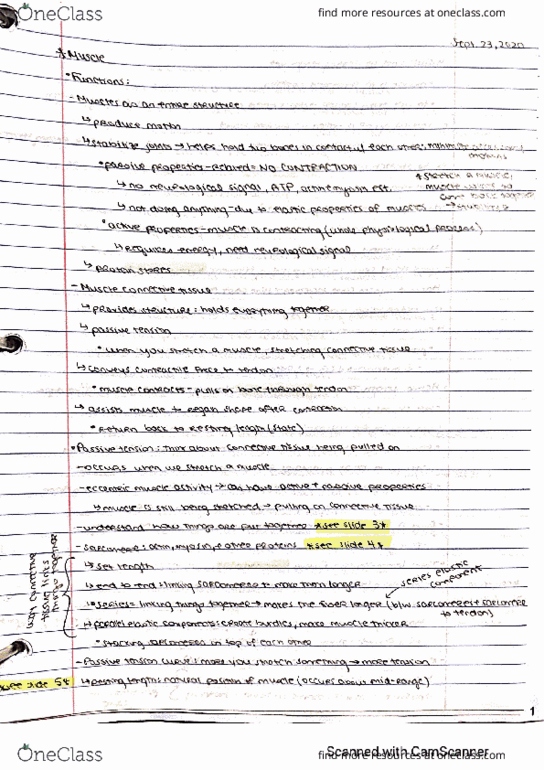 OneClass
find more resources at oneclass.com
Sept. 23, 2020
* Muscle
• Functions:
- Muscles as an entire structure
↳ produce motion
↳ stabilize joints → helps hold two bones in contact w/ each other:
• passive properties - relaxed = NO CONTRACTION
* stretch a muscle,
↳ no neurological signal, ATP, actin myosin est.
muscle wants to
come back together
↳ not doing anything - due to elastic properties of muscles
→ structure
• active properties - muscle is contracting (whole physiological process)
↳ requires energy, need neurological signal
↳ protein stores
- Muscle connective tissue
↳ provides structure: holds everything together
↳ passive tension
• when you stretch a muscle, stretching connective tissue
↳ conveys contractile force to tendon
• muscle contracts - pulls on bone through tendon
↳ assists muscle to regain shape after contraction
• return back to resting length (state)
• Passive tension: think about connective tissue being pulled on
- occurs when we stretch a muscle
- eccentric muscle activity → can have active + passive properties
↳ muscle is still being stretched → pulling on connective tissue
- understand how things are put together *see slide 3*
- sarcomere: actin, myosin, + other proteins *see slide 4*
↳ set length
series elastic component
↳ end to end = linking sarcomeres to make them longer
↳ series = linking things together → makes the fiber longer (b/w sarcomere + sarcomere to tendon)
↳ parallel elastic components: create bundles, make muscle thicker
• stacking sarcomeres on top of each other
way connective tissue links things together
- Passive tension curve: more you stretch something → more tension
*see slide 5*
↳ resting length = natural position of muscle (occurs about mid-range)
1
OneClass
Scanned with CamScanner
find more resources at oneclass.com